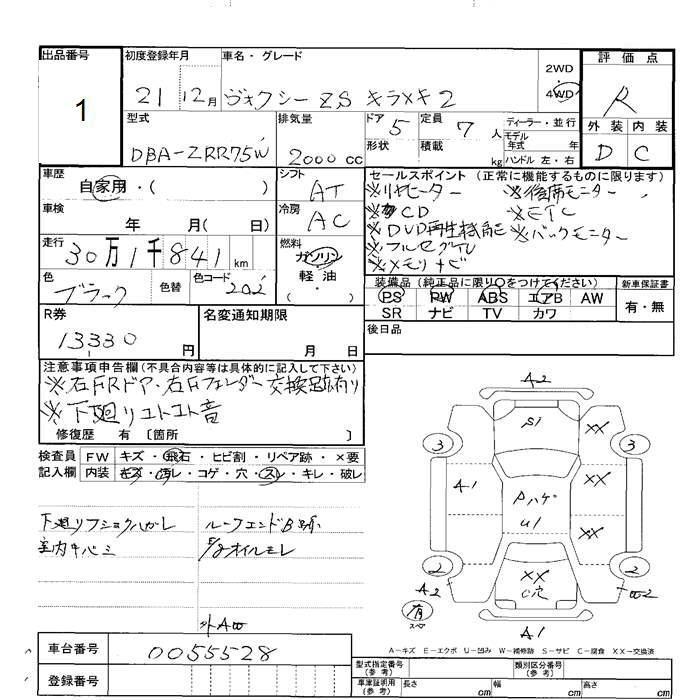 出品番号
1
初度登録年月
21 12月
車名・グレード
ヴォクシー ZS キラメキ2
2WD
・
4WD
評価点
R
外装 内装
D C
型式
DBA-ZRR75W
排気量
2000 cc
ドア 5
形状
定員 7 人
積載 kg
ディーラー・並行
モデル年式 年
ハンドル 左・右
車歴
自家用・( )
車検
年 月( 日)
走行
30万1千841 km
色 ブラック
色替
色コード 202
シフト
AT
冷房
AC
燃料
ガソリン
軽油
( ・ )
セールスポイント (正常に機能するものに限ります)
※リヤヒーター ※後席モニター
※CD ※ETC
※DVD再生機能 ※バックモニター
※フルセグTV
※メモリナビ
装備品(純正品に限り○をつけてください)
PS PW ABS エアB AW
SR ナビ TV カワ
新車保証書
有・無
後日品
R券
13330 円
名変通知期限
月 日
注意事項申告欄(不具合内容等は具体的に記入して下さい)
※右FRドア・右Fフェンダー交換跡有り
※下廻りコトコト音
修復歴 有 〔箇所 〕
検査員記入欄
FW キズ・飛石・ヒビ割・リペア跡・×要
内装 キズ・汚レ・コゲ・穴・スレ・キレ・破レ
下廻リフショクハガレ
室内キバミ
ルーフエンドB跡
E/gオイルモレ
外AW
A2
S1
XX
3
3
A1
Pハゲ
U1
XX
XX
2
2
XX
C穴
A2
W2
有
スペア
A1
A-キズ E-エクボ U-凹み W-補修跡 S-サビ C-腐食 XX-交換済
車台番号
0055528
登録番号
型式指定番号
(参考)
類別区分番号
(参考)
車庫証明用
(参考)
長さ cm
幅 cm
高さ cm